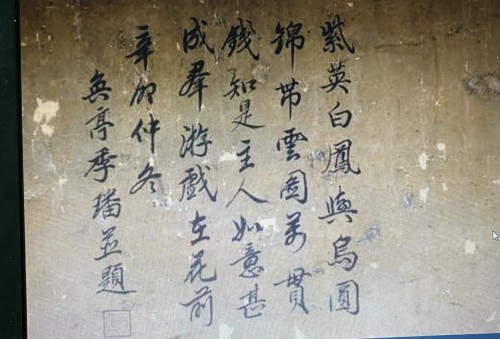 紫英白鳳與烏圓
錦帶雲圖萬貫
錢知是主人如意甚
成羣游戲在花前
辛卯仲冬
亭季璠並題